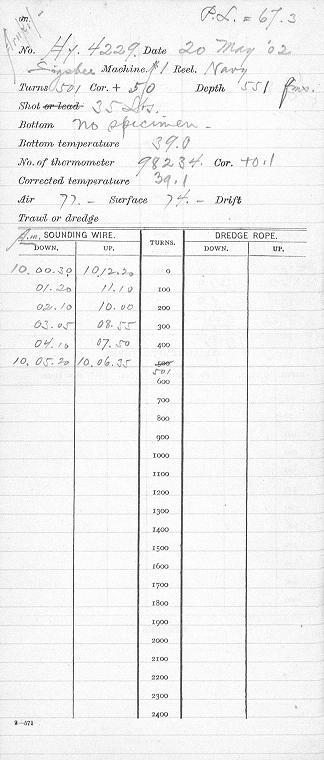 P.L. = 67.3
No. Hy. 4229 Date 20 May '02
Sigsbee Machine. #1 Reel. Navy
Turns 501 Cor. + 50 Depth 551 fms.
Shot or lead 35 Lbs.
Bottom No specimen -
Bottom temperature 39.0
No. of thermometer 98234. Cor. +0.1
Corrected temperature 39.1
Air 77. - Surface 74. - Drift
Trawl or dredge
a.m. SOUNDING WIRE. TURNS. DREDGE ROPE.
DOWN. UP. DOWN. UP.
10.00.30 10.12.20 0
01.20 11.10 100
02.10 10.00 200
03.05 08.55 300
04.10 07.50 400
10.05.20 10.06.35 500
501
600
700
800
900
1000
1100
1200
1300
1400
1500
1600
1700
1800
1900
2000
2100
2200
2300
2400
2—571